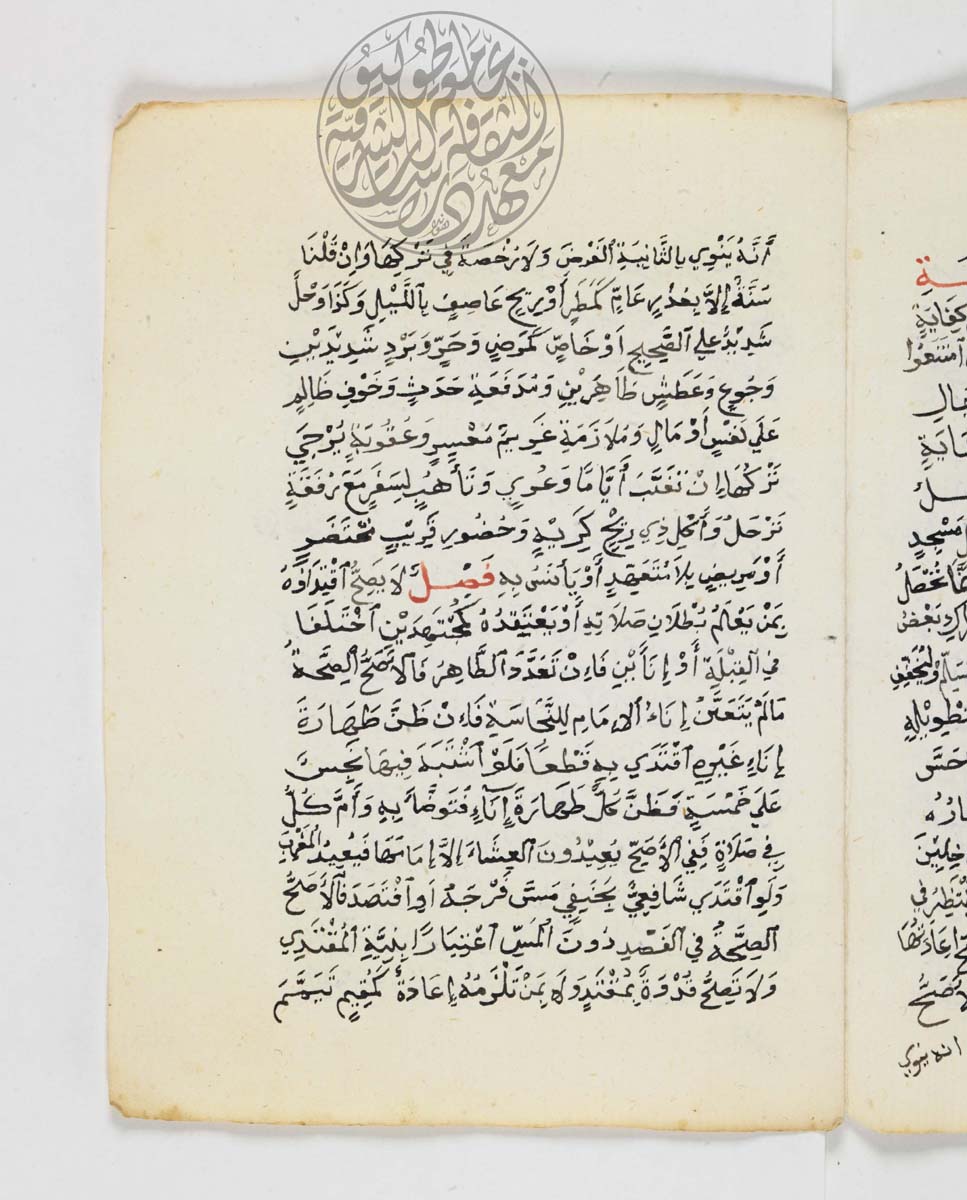 معهد الثقافة والدراسات الشرقية
جامعة طوكيو
كِفَايَةٍ
امْتَنَعُوا
مَسْجِدٍ
تُحَصَّلُ
بَعْضُ
يَصِحُّ
انه ينوي
أَنَّهُ يَنْوِي بِالثَّانِيَةِ الْفَرْضَ وَلَا رُخْصَةَ فِي تَرْكِهَا وَإِنْ قُلْنَا
سُنَّةٌ إِلَّا بِعُذْرٍ عَامٍّ كَمَطَرٍ أَوْ رِيحٍ عَاصِفٍ بِاللَّيْلِ وَكَذَا وَحَلٌ
شَدِيدٌ عَلَى الصَّحِيحِ أَوْ خَاصٍّ كَمَرَضٍ وَحَرٍّ وَبَرْدٍ شَدِيدَيْنِ
وَجُوعٍ وَعَطَشٍ ظَاهِرَيْنِ وَمُدَفَعَةِ حَدَثٍ وَخَوْفِ ظَالِمٍ
عَلَى نَفْسٍ أَوْ مَالٍ وَمُلَازَمَةِ غَرِيمٍ مُعْسِرٍ وَعُقُوبَةٍ يُرْجَى
تَرْكُهَا إِنْ تَغَيَّبَ أَيَّامًا وَعُرِيٍ وَتَأَهُّبٍ لِسَفَرٍ مَعَ رُفْقَةٍ
تَرْحَلُ وَأَكْلِ ذِي رِيحٍ كَرِيهٍ وَحُضُورِ قَرِيبٍ مُحْتَضَرٍ
أَوْ مَرِيضٍ بِلَا مُتَعَهِّدٍ أَوْ يَأْنَسُ بِهِ فَصْلٌ لَا يَصِحُّ اقْتِدَاؤُهُ
بِمَنْ يَعْلَمُ بُطْلَانَ صَلَاتِهِ أَوْ يَعْتَقِدُهُ كَمُجْتَهِدَيْنِ اخْتَلَفَا
فِي الْقِبْلَةِ أَوْ إِنَاءَيْنِ فَإِنْ تَعَدَّدَ الطَّاهِرُ فَالْأَصَحُّ الصِّحَّةُ
مَا لَمْ يَتَعَيَّنْ إِنَاءُ الْإِمَامِ لِلنَّجَاسَةِ فَإِنْ ظَنَّ طَهَارَةَ
إِنَاءِ غَيْرِهِ اقْتَدَى بِهِ قَطْعًا فَلَوْ اشْتَبَهَ فِيهَا نَجِسٌ
عَلَى خَمْسَةٍ فَظَنَّ كُلٌّ طَهَارَةَ إِنَاءٍ فَتَوَضَّأَ بِهِ وَأَمَّ كُلٌّ
فِي صَلَاةٍ فَفِي الْأَصَحِّ يُعِيدُونَ الْعِشَاءَ إِلَّا إِمَامَهَا فَيُعِيدُ الْمَغْرِبَ
وَلَوِ اقْتَدَى شَافِعِيٌّ بِحَنَفِيٍّ مَسَّ فَرْجَهُ أَوِ افْتَصَدَ فَالْأَصَحُّ
الصِّحَّةُ فِي الْفَصْدِ دُونَ الْمَسِّ اعْتِبَارًا بِنِيَّةِ الْمُقْتَدِي
وَلَا تَصِحُّ قُدْوَةٌ بِمُقْتَدٍ وَلَا بِمَنْ تَلْزَمُهُ إِعَادَةٌ كَمُقِيمٍ تَيَمَّمَ